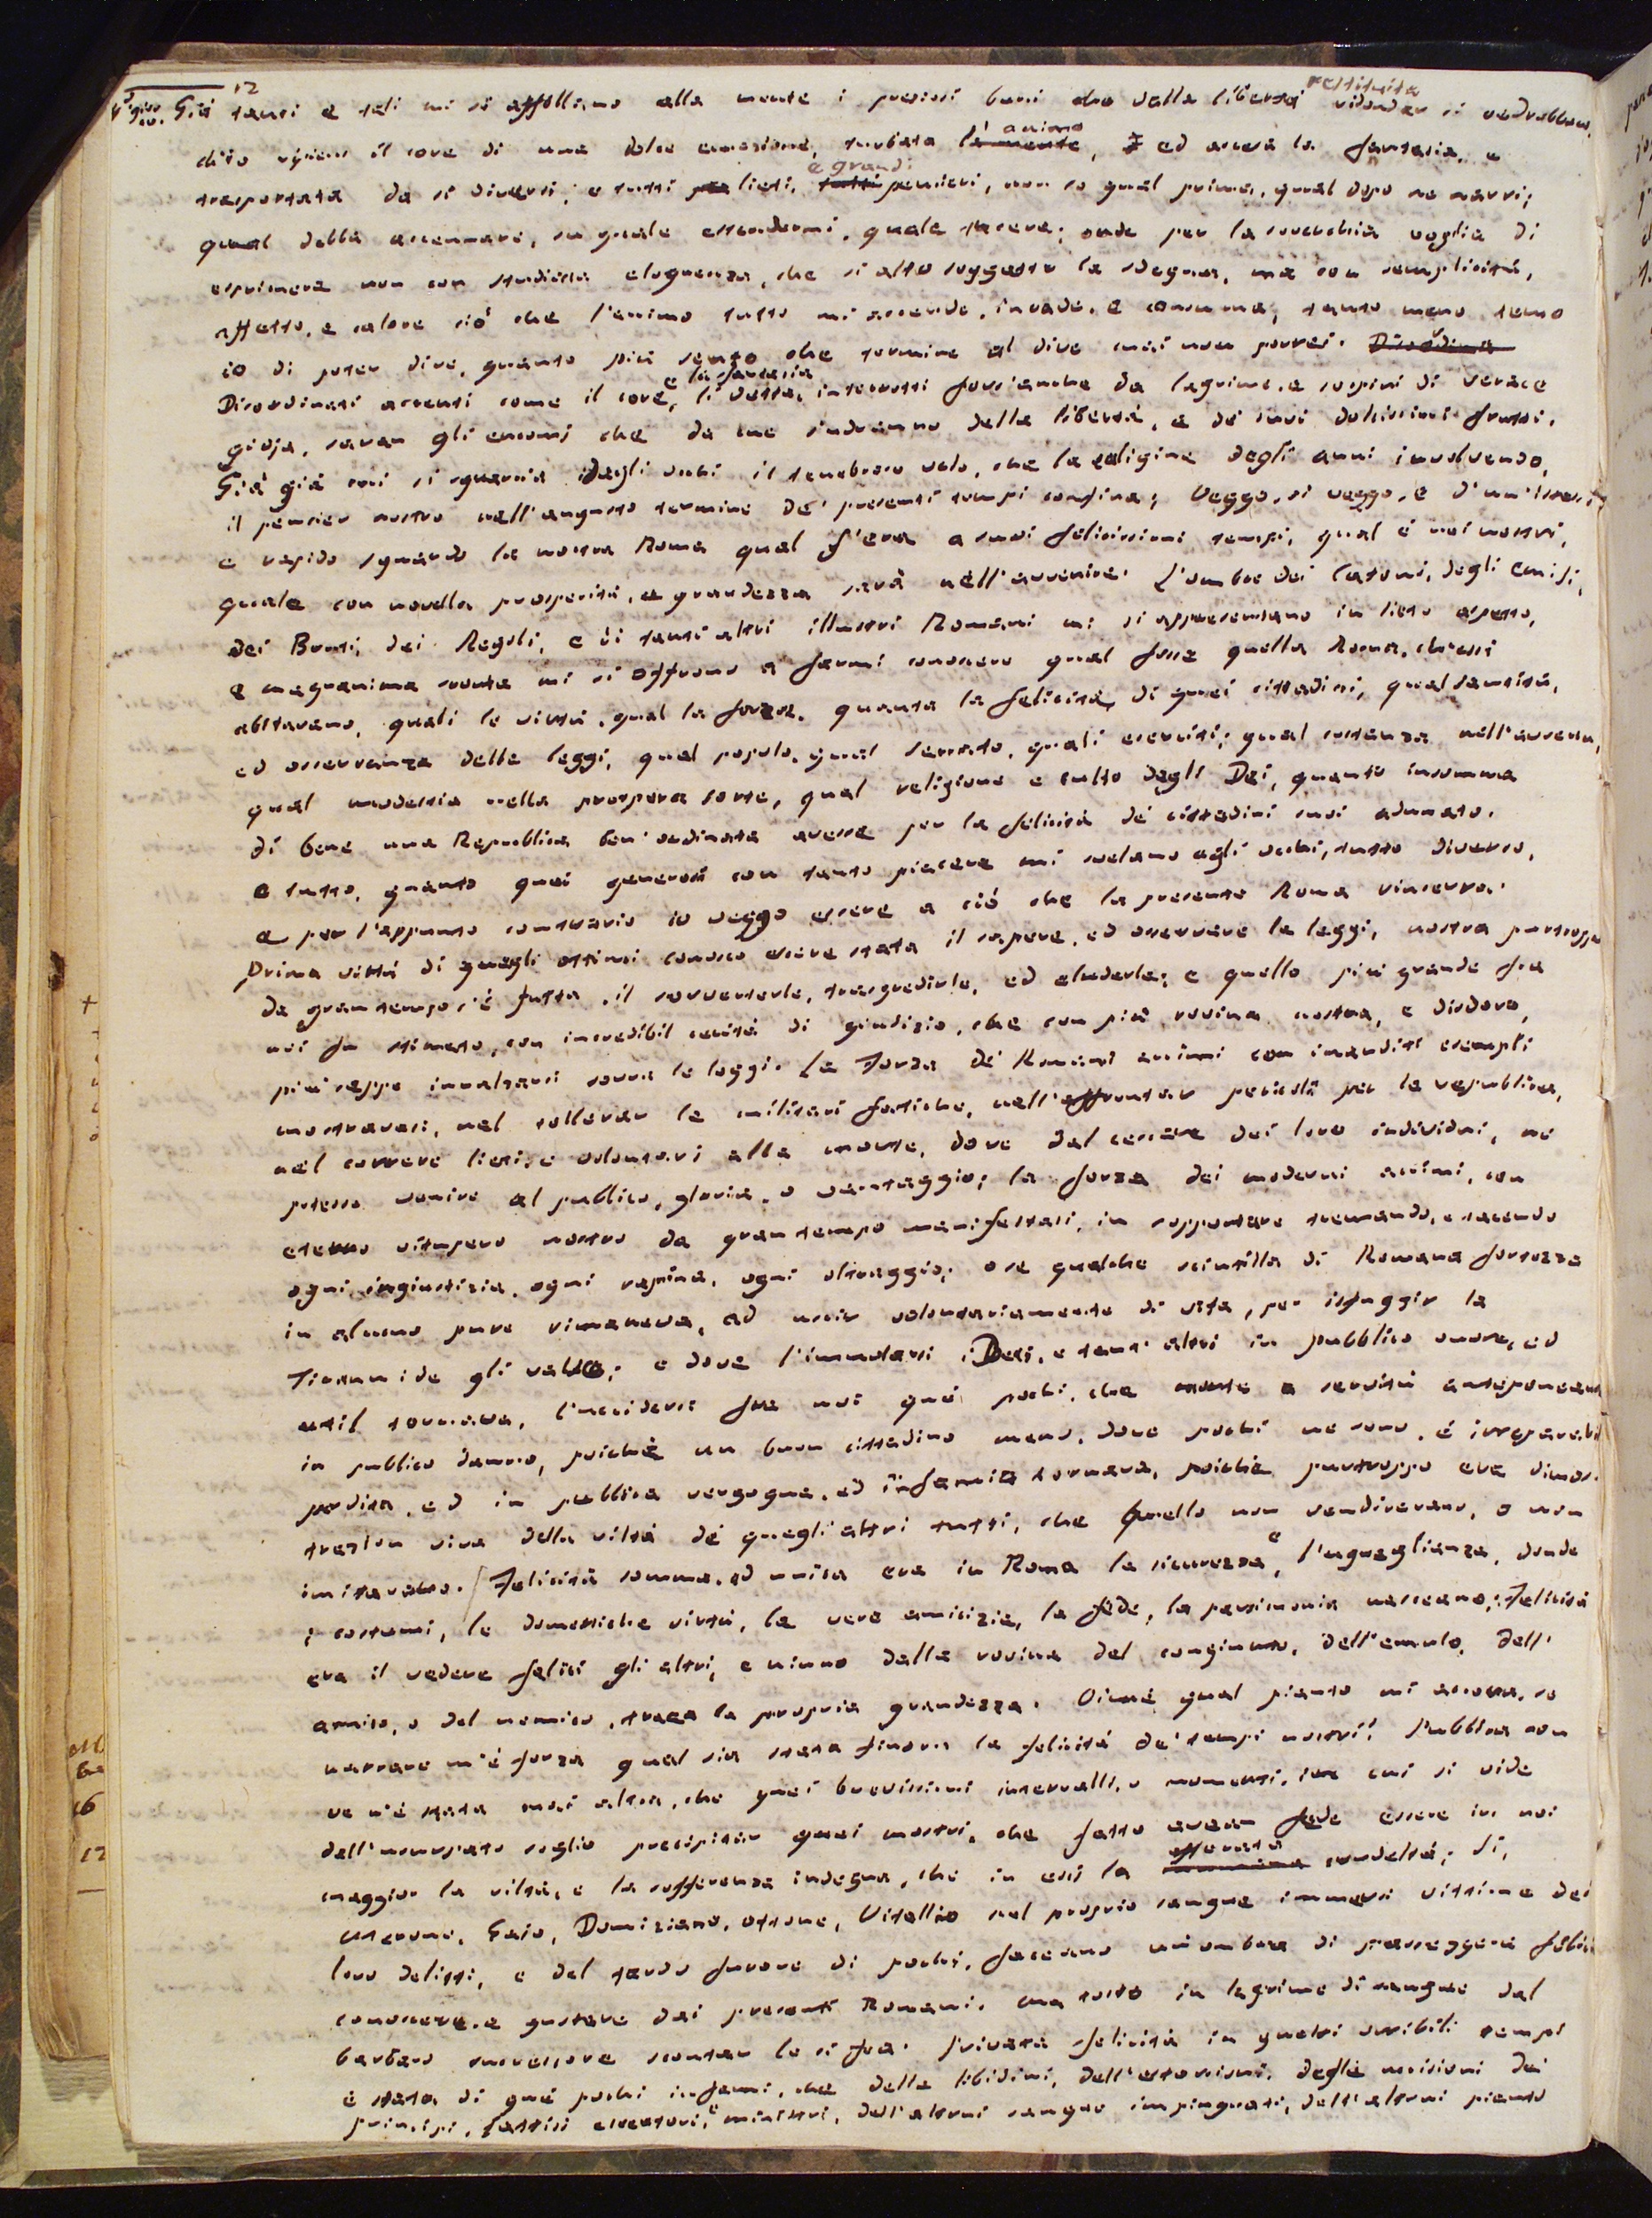 12
restituita
Già tanti e tali mi si affollano alla mente i preziosi beni che dalla libertà ridondar si vedrebbero,
animo
ch'io ripieno il core di una dolce emozione, turbata la mente, ed accesa la fantasia, e
e grandi
trasportata da sì diversi, e tutti lieti, tutti pensieri, non so qual prima, qual dopo ne narri;
qual debba accennare, su quale estendermi, quale tacere; onde per la soverchia voglia di
esprimere non con studiata eloquenza, che sì alto soggetto la sdegna, ma con semplicità,
affetto, e calore ciò che l'animo tutto mi accende, invade, e consuma, tanto meno temo
io di poter dire, quanto più sento che termine al dire mai non porrei. Disordina
e la fantasia
Disordinati accenti come il core, li detta, interrotti forsianche da lagrime, e sospiri di verace
gioja, saran gli encomi che da me s'udranno della libertà, e de' suoi dolcissimi frutti.
Già già mi si squarcia dagli occhi il tenebroso velo, che la caligine degli anni involvendo,
il pensier nostro nell'angusto termine de' presenti tempi confina; Veggo, sì veggo, e d'un
e rapido sguardo la nostra Roma qual s'era a suoi felicissimi tempi, qual è nei nostri,
quale con novella prosperità, e grandezza sarà nell'avvenire. L'ombre dei Catoni, degli Emilj,
dei Bruti, dei Regoli, e di tanti altri illustri Romani mi si appresentano in lieto aspetto,
e magnanima mi si offrono a farmi conoscere qual fosse quella Roma, ch'essi
abitavano, quali le virtù, qual la forza, quanta la felicità, di quei cittadini, qual santità,
ed osservanza delle leggi, qual popolo, qual Senato, quali eserciti; qual costanza nell'avversa,
qual modestia nella prospera sorte, qual religione e culto degli Dei, quanto insomma
di bene una Repubblica ben ordinata avesse per la felicità de' cittadini suoi adunato.
e tutto, quanto quei generosi con tanto piacere mi svelano agli occhi, tutto diverso,
e per l'appunto contrario io veggo essere a ciò che la presente Roma rinserra.
Prima virtù di quegli ottimi conosco essere stata il sapere, ed osservare le leggi, nostra purtroppo
da gran tempo s'è fatta, il sovvertirle, trasgredirle, ed eluderle; e quello più grande fra
noi fu stimato, con incredibil cecità di giudizio, che con più rovina nostra, e disdoro,
più seppe innalzarsi sovra le leggi. La Forza de' Romani animi con inauditi esempli
mostravasi, nel tollerar le militari fatiche, nell'affrontar pericoli per la repubblica,
nel correre lieti, e volontari alla morte, dove dal cessare dei loro individui, ne
potesse venire al publico, gloria, o vantaggio; la forza dei moderni animi, con
eterno vitupero nostro da gran tempo manifestasi, in sopportare tremando, e tacendo
ogni ingiustizia, ogni rapina, ogni oltraggio; o se qualche scintilla di Romana fortezza
in alcuno pure rimaneva, ad uscir volontariamente di vita, per isfuggir la
Tirannide gli valse; e dove l'immolarsi i Decj, e tant'altri in pubblico onore, ed
util tornava, l'uccidersi fra noi quei pochi, che morte a servitù anteponeano
in publico danno, poiché un buon cittadino meno, dove pochi ne sono, è irreparabil
perdita, ed in pubblica vergogna, ed infamia tornava, poiché purtroppo era dimos-
trazion viva della viltà de quegli altri tutti, che quello non vendicavano, o non
e
imitavano. Felicità somma, ed unica era in Roma la sicurezza, l'uguaglianza, donde
i costumi, le domestiche virtù, le vere amicizie, la fede, la parsimonia nasceano; Felicità
era il vedere felici gli altri, e niuno dalla rovina del congiunto, dell'emulo, dell'
amico, o del nemico, traea la propria grandezza. Oimè qual pianto mi accora, se
narrare m'è forza qual sia stata finora la felicità de' tempi nostri! Pubblica non
ve n'è stata mai altra, che quei brevissimi intervalli, o momenti, in cui si vide
dall'usurpato soglio precipitar quei mostri, che fatto avean fede essere in noi
efferata
maggior la viltà, e la sofferenza indegna, che in essi la crudeltà; Sì,
Nerone, Gajo, Domiziano, Ottone, Vitellio nel proprio sangue immersi vittime dei
loro delitti, e del tardo furore di pochi, faceano un'ombra di passeggera felicità
conoscere, e gustare dai presenti Romani, ma tosto in lagrime di sangue dal
barbaro successore scontar le si fea. Privata felicità in questi orribili tempi
è stata di quei pochi infami, che delle libidini, dell'estorsioni, degli uccisioni dei
principi, fattisi esecutori, e ministri, dell'altrui sangue impinguati, dell'altrui pianto